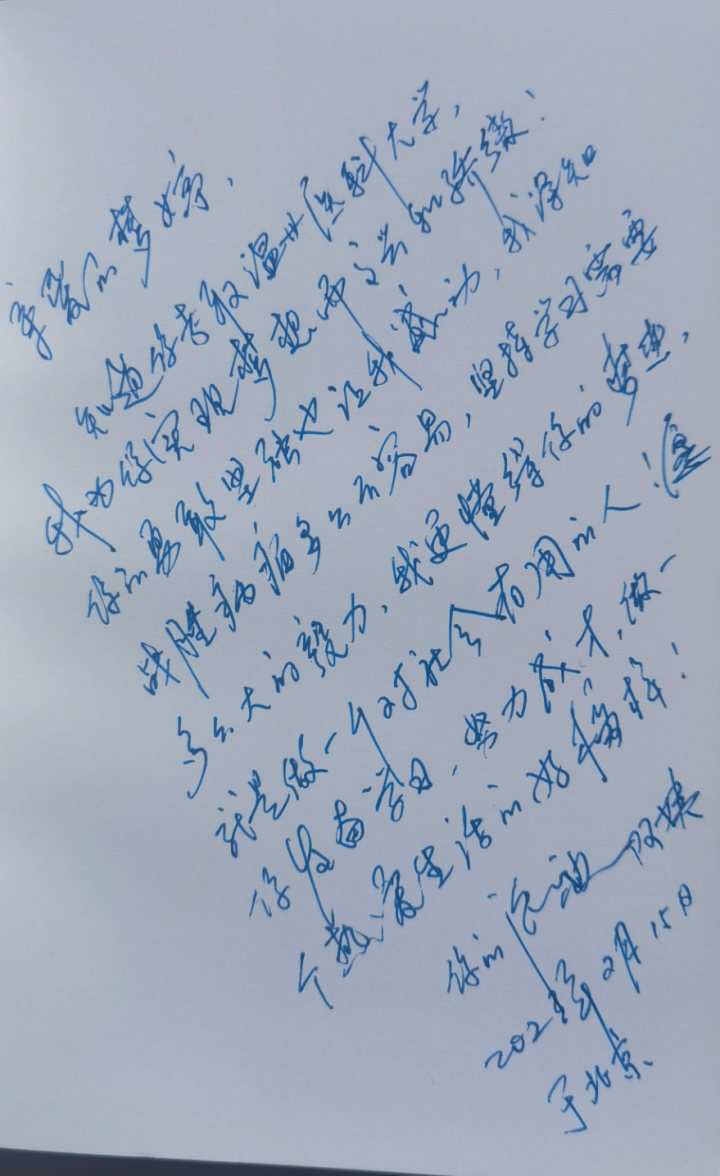 亲爱的梦婷，
知道你考取温州医科大学，
我为你实现梦想而高兴和骄傲！
你的勇敢坚强也让我感动，我深知
战胜病痛多么不容易，坚持学习需要
多么大的毅力，我更懂得你的梦想，
就是做一个对社会有用的人！愿
你发奋学习，努力成才，做一
个热爱生活的好榜样！
你的 阿姨
202 年2月15日
于北京